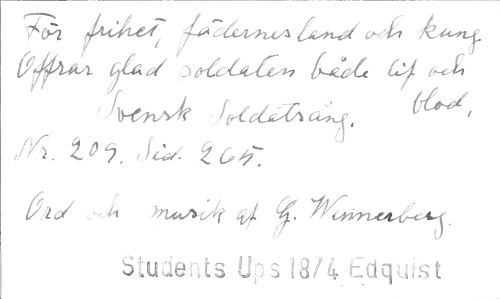 För frihet, fädernesland och kung
Offrar glad soldaten både lif och
blod,
Svensk Soldatsång.
Nr. 209. Sid. 265.
Ord och musik af G. Wennerberg.
Students Ups 18/4 Edquist